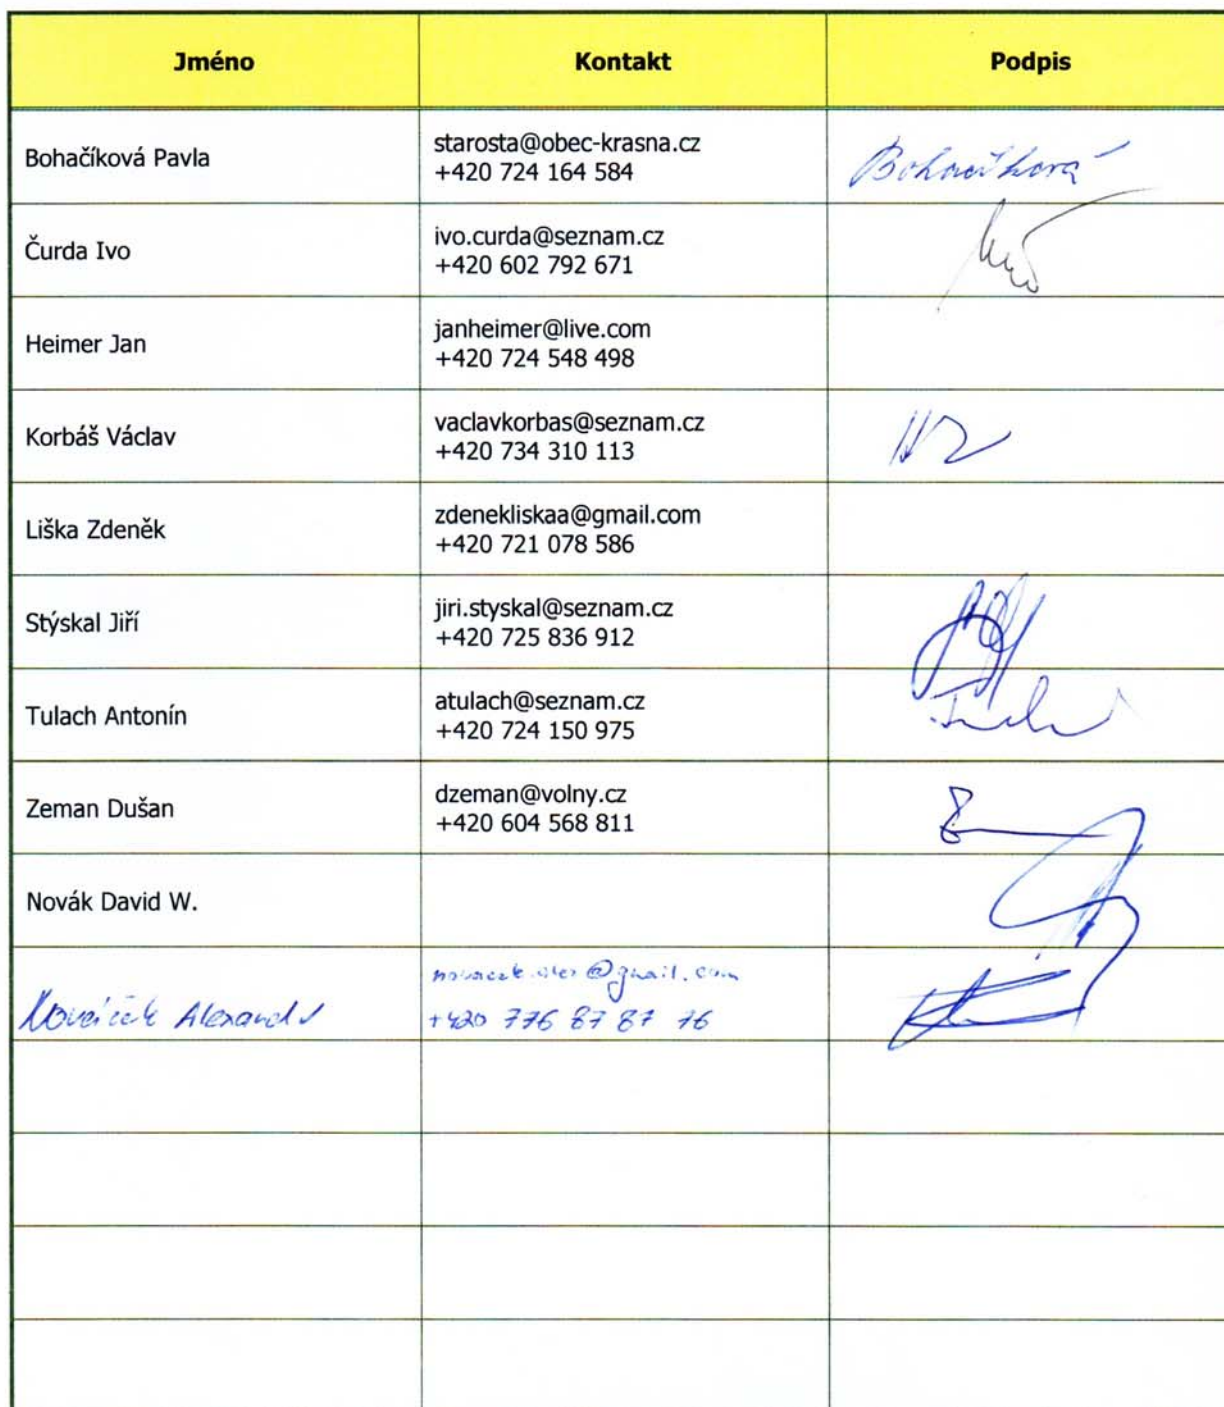 Jméno Kontakt Podpis
Bohačíková Pavla
starosta@obec-krasna.cz
+420 724 164 584
Bohačíková
Čurda Ivo
ivo.curda@seznam.cz
+420 602 792 671
Heimer Jan
janheimer@live.com
+420 724 548 498
Korbáš Václav
vaclavkorbas@seznam.cz
+420 734 310 113
Liška Zdeněk
zdenekliskaa@gmail.com
+420 721 078 586
Stýskal Jiří
jiri.styskal@seznam.cz
+420 725 836 912
Tulach Antonín
atulach@seznam.cz
+420 724 150 975
Zeman Dušan
dzeman@volny.cz
+420 604 568 811
Novák David W.
Nováček Alexandr
@gmail.com
+420 776 87 87 76